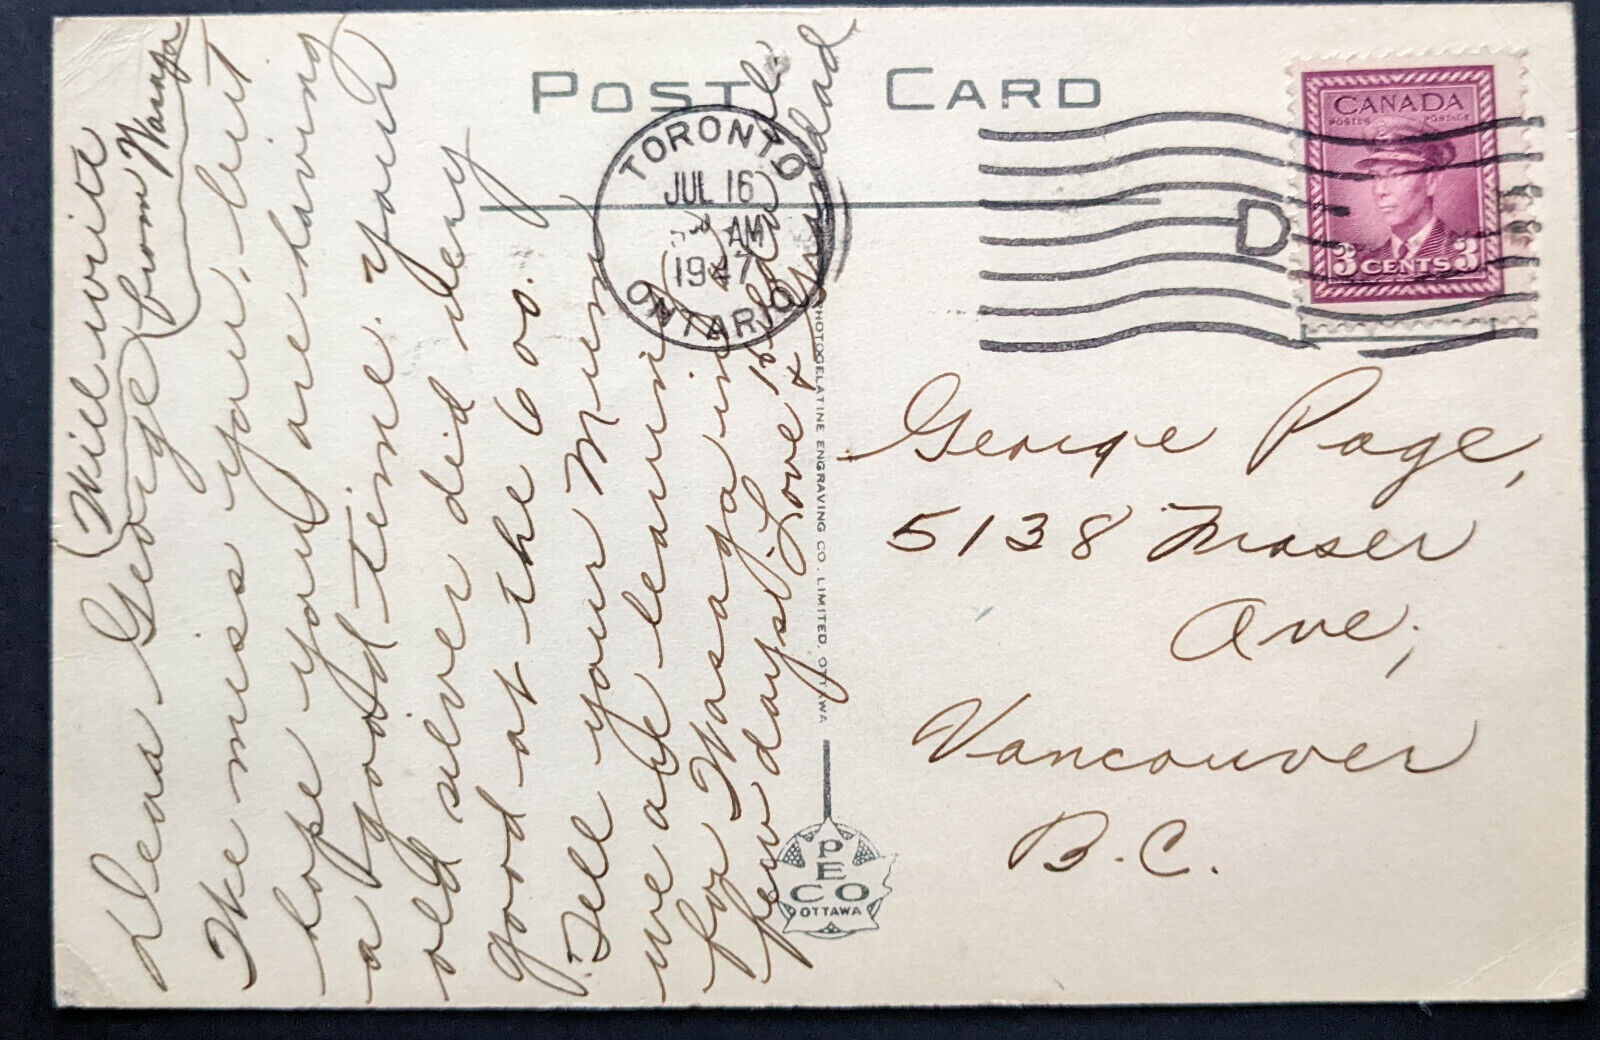 POST CARD
TORONTO
JUL 16
AM
1947
ONTARIO
D
CANADA
POSTES POSTAGE
3 CENTS 3
George Page,
5138 Fraser
Ave;
Vancouver
B.C.
(Will write
from Wasaga
Dear George
We miss you, but
hope you are having
a good time. Your
old silver did very
good at the 600.
Tell your Mum
we are leaving
for Wasaga in a
few days. Love
& Grandad
PHOTOGELATINE ENGRAVING CO. LIMITED, OTTAWA
PECO
OTTAWA